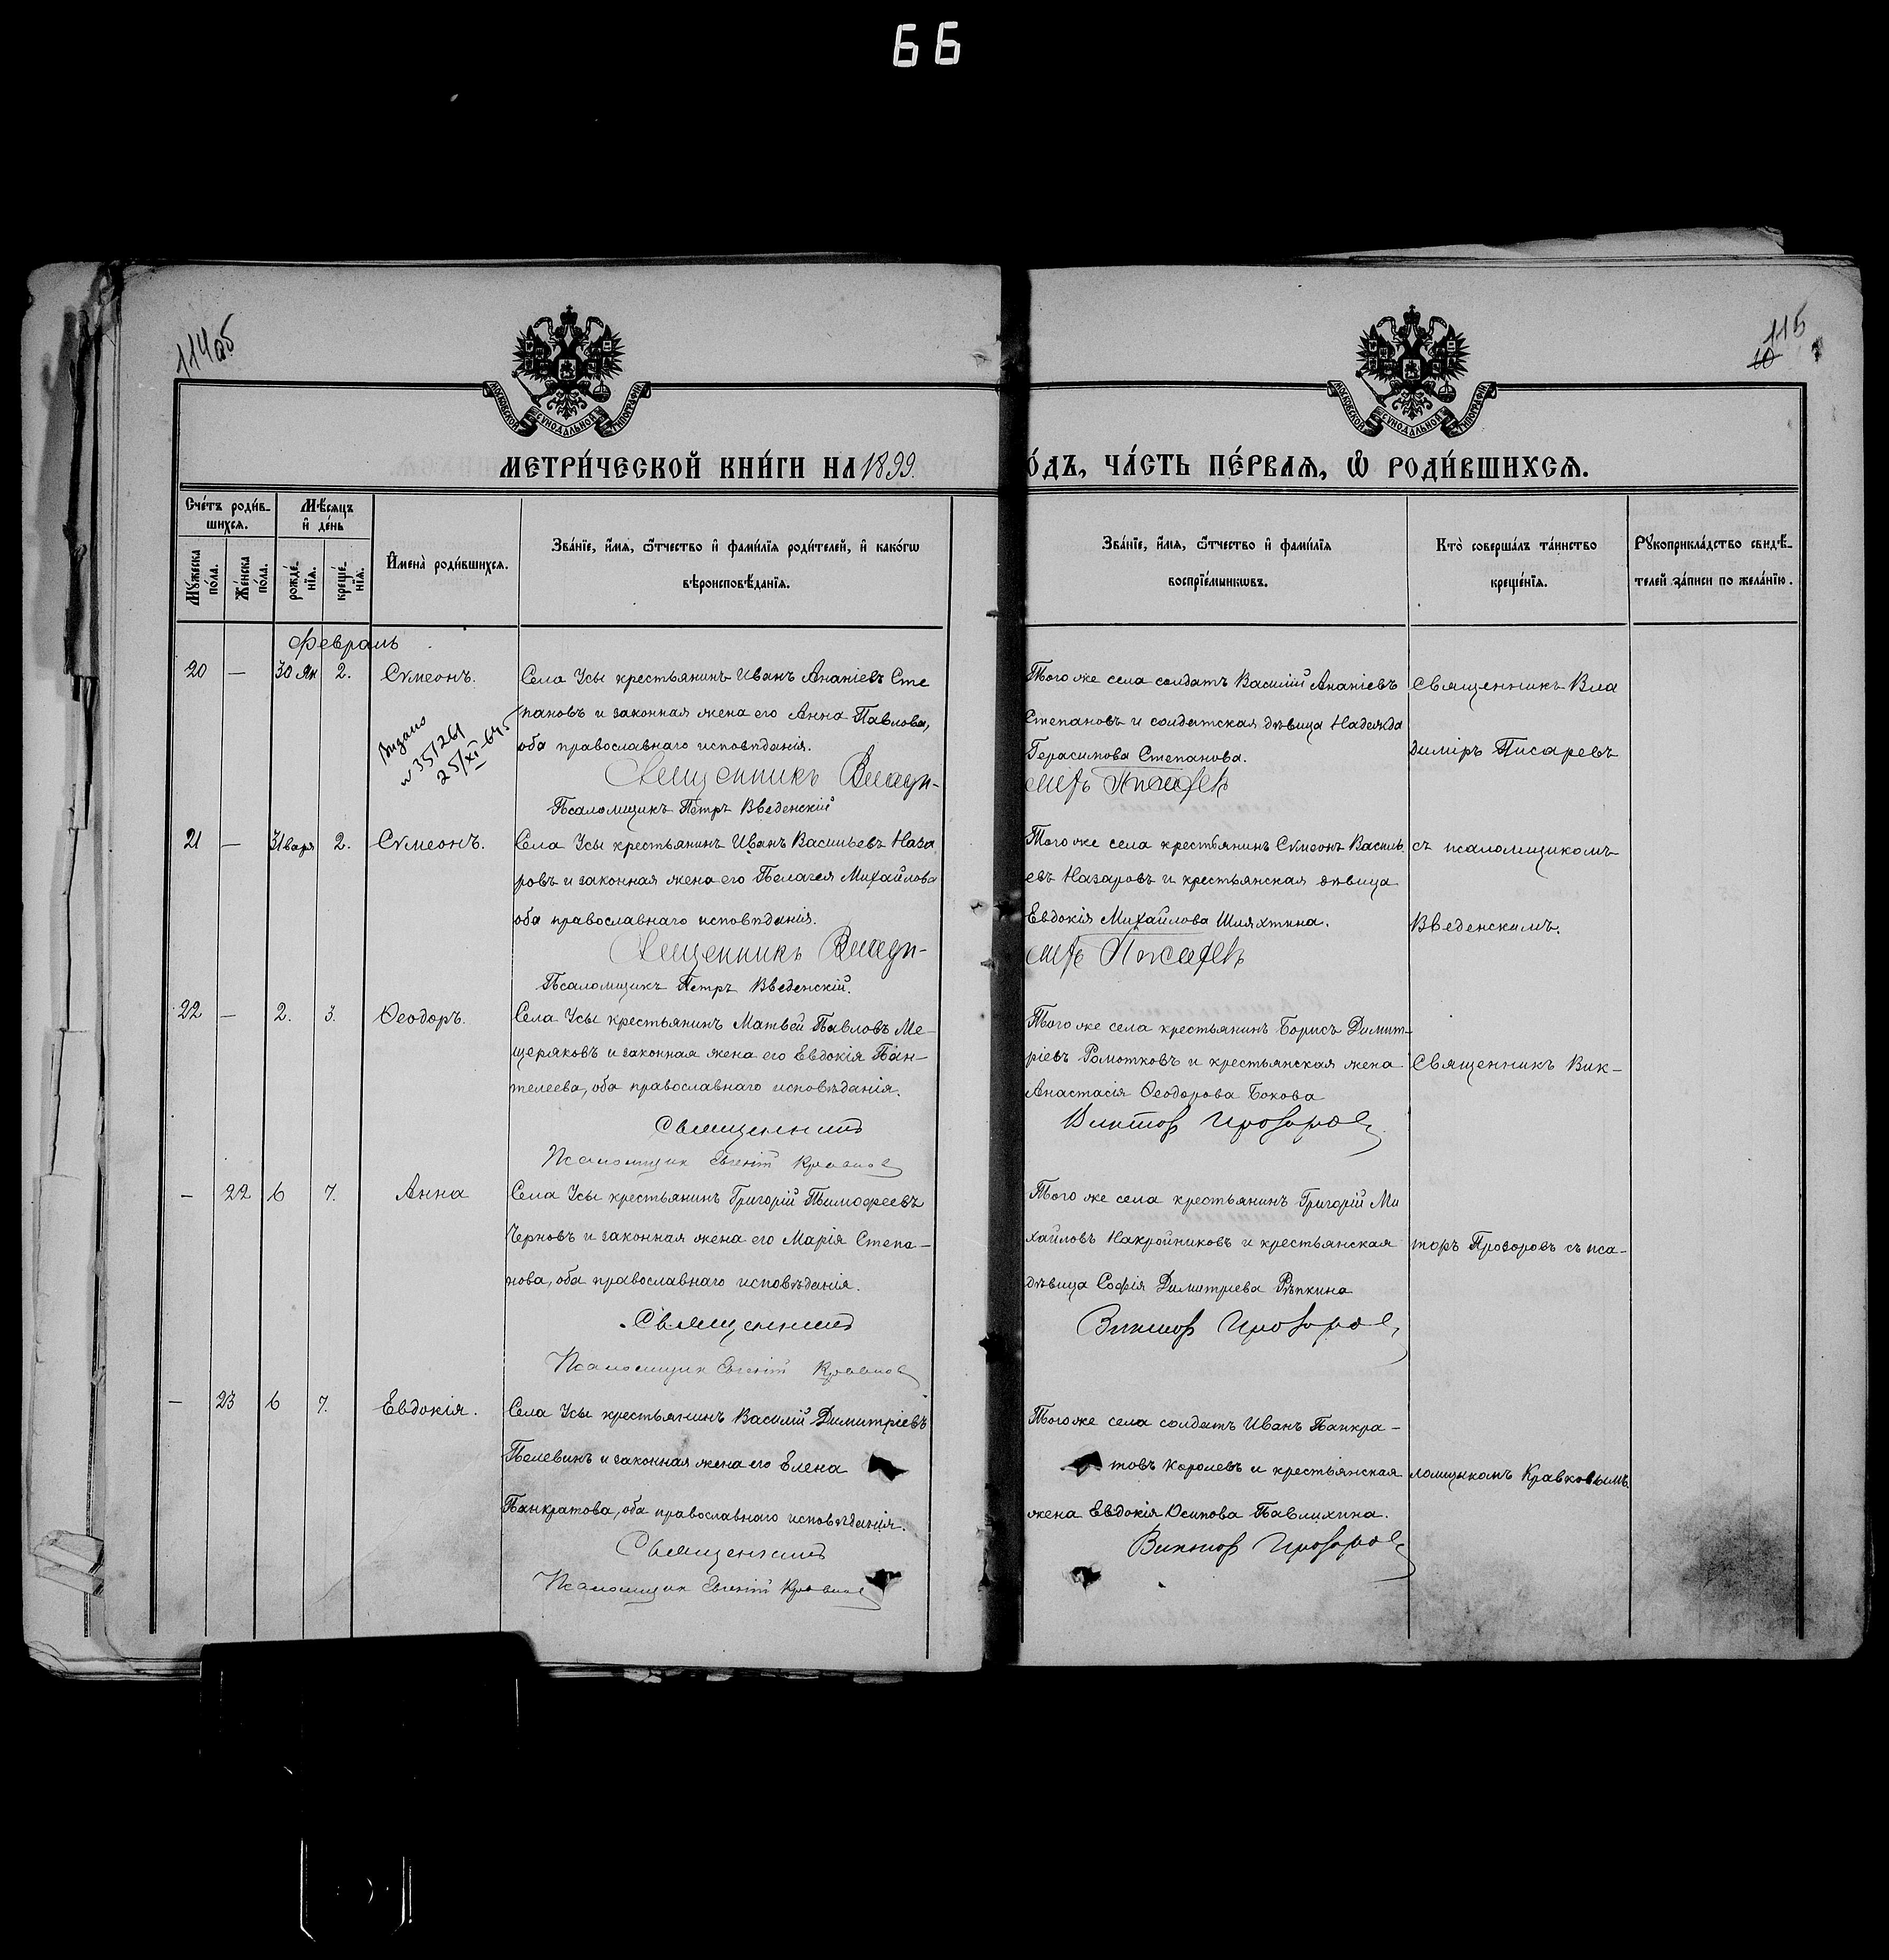 66
114об
115
10
МОСКОВСКОЙ СУНОДАЛЬНОЙ ТИПОГРАФІИ
МОСКОВСКОЙ СУНОДАЛЬНОЙ ТИПОГРАФІИ
МЕТРИ́ЧЕСКОЙ КНИ́ГИ НА 1899
О́ДЪ, ЧА́СТЬ ПЕ́РВАЯ, Ѡ҆ РОДИ́ВШИХСѦ.
Сче́тъ роди́в-
шихсѧ.
Мѣ́сяцъ
и҆ де́нь
Мꙋ́жеска
по́ла.
Же́нска
по́ла.
рожде́-
нїѧ.
креще́-
нїѧ.
И҆мена̀ роди́вшихсѧ.
Зва́нїе, и҆́мѧ, ѻ҆́тчество и҆ фами́лїѧ роди́телей, и҆ како́гѡ
вѣроисповѣ́данїѧ.
Зва́нїе, и҆́мѧ, ѻ҆́тчество и҆ фами́лїѧ
воспрїе́мникѡвъ.
Кто̀ соверша́лъ та́инство
креще́нїѧ.
Рꙋкоприкла́дство свидѣ́-
телей за́писи по жела́нїю.
Февраль
20 — 30 Ян 2. Сѵмеонъ.
Села Усы крестьянинъ Иванъ Ананіевъ Сте
пановъ и законная жена его Анна Павлова,
оба православнаго исповѣданія.
Священникъ Влади-
Псаломщикъ Петръ Введенскій
Выдано
№ 35/261
25/XI-645
Того же села солдатъ Василій Ананіевъ
Степановъ и солдатская дѣвица Надежда
Герасимова Степанова.
міръ Писаревъ
Священникъ Вла
диміръ Писаревъ
21 — 31 варя 2. Сѵмеонъ.
Села Усы крестьянинъ Иванъ Васильевъ Наза
ровъ и законная жена его Пелагея Михайлова
оба православнаго исповѣданія.
Священникъ Влади-
Псаломщикъ Петръ Введенскій.
Того же села крестьянинъ Сѵмеонъ Василь
евъ Назаровъ и крестьянская дѣвица
Евдокія Михайлова Шляхтина.
міръ Писаревъ
съ псаломщикомъ
Введенскимъ.
22 — 2. 3. Ѳеодоръ.
Села Усы крестьянинъ Матвей Павловъ Ме-
щеряковъ и законная жена его Евдокія Пан-
телеева, оба православнаго исповѣданія.
Священникъ
Псаломщик Евгеній Кравков
Того же села крестьянинъ Борисъ Димит-
ріевъ Ромотковъ и крестьянская жена
Анастасія Ѳеодорова Бокова
Виктор Прозоров
Священникъ Вик-
— 22 6 7. Анна
Села Усы крестьянинъ Григорій Тимофеевъ
Черновъ и законная жена его Марія Степа-
нова, оба православнаго исповѣданія.
Священникъ
Псаломщик Евгеній Кравков
Того же села крестьянинъ Григорій Ми
хайловъ Накройниковъ и крестьянская
дѣвица Софія Димитриева Рѣпкина
Виктор Прозоров
торъ Прозоровъ съ пса-
— 23 6 7. Евдокія.
Села Усы крестьянинъ Василій Димитріевъ
Пелевинъ и законная жена его Елена
Панкратова, оба православнаго исповѣданія.
Священникъ
Псаломщик Евгеній Кравков
Того же села солдатъ Иванъ Панкра-
товъ Королевъ и крестьянская
жена Евдокія Осипова Павлихина.
Виктор Прозоров
ломщикомъ Кравковымъ.